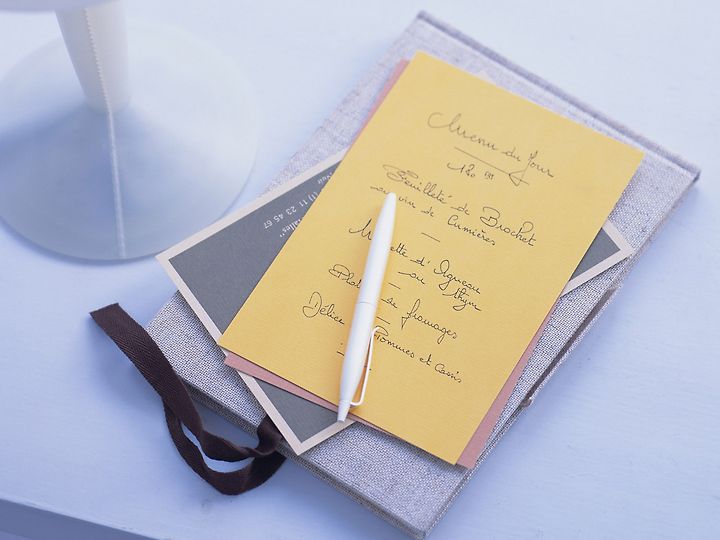 Menu du Jour
120
Feuilleté de Brochet
au vin de Cumières
d'Agneau
au thym
de fromages
Délice Pommes et Cassis
11 23 45 67